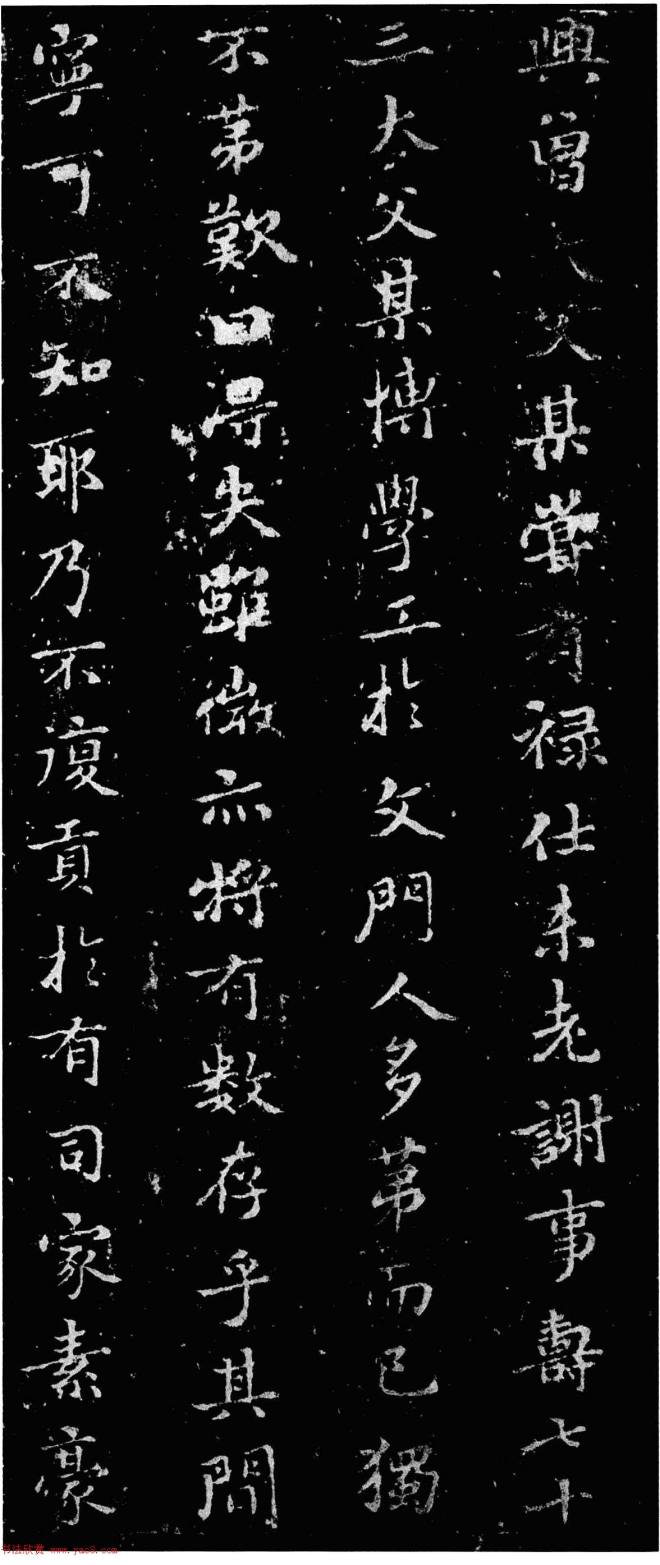 興曾大父某嘗有禄仕未老謝事壽七十
三大父某博學工於文門人多第而已獨
不第歎曰得失雖微亦將有数存乎其間
寧可不知耶乃不復貢於有司家素豪
书法欣赏 www.yac8.com